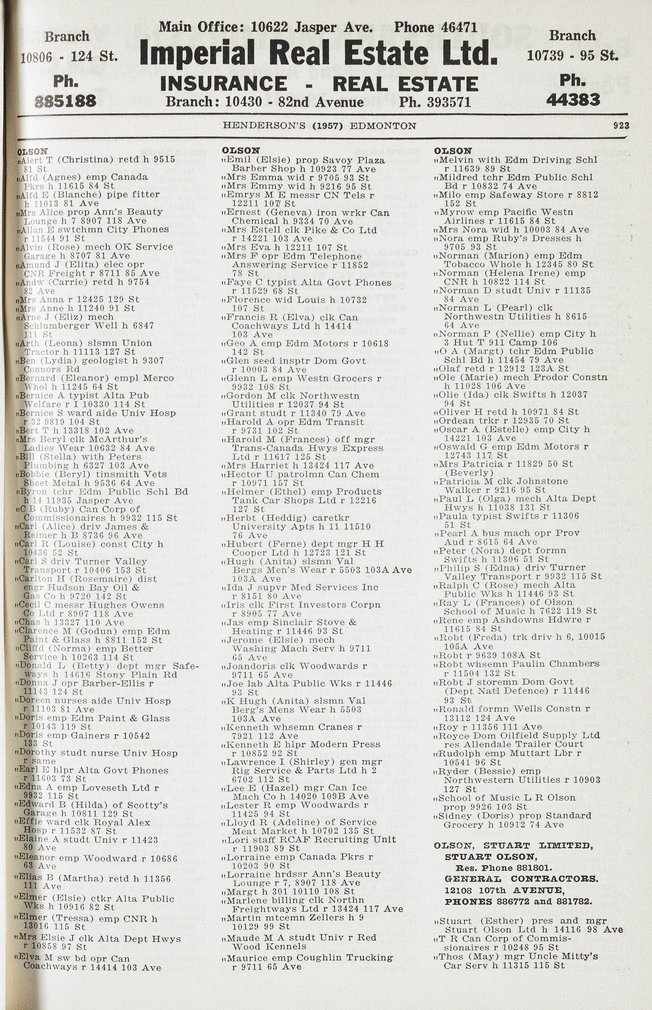 Branch
10806 - 124 St.
Ph.
885188
Main Office: 10622 Jasper Ave. Phone 46471
Imperial Real Estate Ltd.
INSURANCE - REAL ESTATE
Branch: 10430 - 82nd Avenue Ph. 393571
Branch
10739 - 95 St.
Ph.
44383
HENDERSON'S (1957) EDMONTON 923
OLSON
„Alert T (Christina) retd h 9515
81 St
„Alfd (Agnes) emp Canada
Pkrs h 11615 84 St
„Alfd E (Blanche) pipe fitter
h 11013 81 Ave
„Mrs Alice prop Ann's Beauty
Lounge h 7 8907 118 Ave
„Allan E swtchmn City Phones
r 11544 91 St
„Alvin (Rose) mech OK Service
Garage h 8707 81 Ave
„Amund J (Elita) elec opr
CNR Freight r 8711 85 Ave
„Andw (Carrie) retd h 9754
82 Ave
„Mrs Anna r 12425 129 St
„Mrs Anne h 11240 91 St
„Arne J (Eliz) mech
Schlumberger Well h 6847
111 St
„Arth (Leona) slsmn Union
Tractor h 11113 127 St
„Ben (Lydia) geologist h 9307
Connors Rd
„Bernard (Eleanor) empl Merco
Whol h 11245 64 St
„Bernice A typist Alta Pub
Welfare r 1 10330 114 St
„Bernice S ward aide Univ Hosp
r 32 9819 104 St
„Bert T h 13318 102 Ave
„Mrs Beryl clk McArthur's
Ladies Wear 10632 84 Ave
„Bill (Stella) with Peters
Plumbing h 6327 103 Ave
„Bobbie (Beryl) tinsmith Vets
Sheet Metal h 9536 64 Ave
„Byron tchr Edm Public Schl Bd
h 14 11935 Jasper Ave
„C B (Ruby) Can Corp of
Commissionaires h 9932 115 St
„Carl (Alice) driv James &
Reimer h B 8736 96 Ave
„Carl R (Louise) const City h
10436 52 St
„Carl S driv Turner Valley
Transport r 10406 153 St
„Carlton H (Rosemaire) dist
engr Hudson Bay Oil &
Gas Co h 9720 142 St
„Cecil C messr Hughes Owens
Co Ltd r 8907 118 Ave
„Chas h 13327 110 Ave
„Clarence M (Godun) emp Edm
Paint & Glass h 8811 152 St
„Cliffd (Norma) emp Better
Service h 10263 114 St
„Donald L (Betty) dept mgr Safe-
ways h 14616 Stony Plain Rd
„Donna J opr Barber-Ellis r
11143 124 St
„Doreen nurses aide Univ Hosp
r 11103 81 Ave
„Doris emp Edm Paint & Glass
r 10143 119 St
„Doris emp Gainers r 10542
133 St
„Dorothy studt nurse Univ Hosp
r same
„Earl E hlpr Alta Govt Phones
r 11603 73 St
„Edna A emp Loveseth Ltd r
9932 115 St
„Edward B (Hilda) of Scotty's
Garage h 10811 129 St
„Effie ward clk Royal Alex
Hosp r 11532 87 St
„Elaine A studt Univ r 11423
80 Ave
„Eleanor emp Woodward r 10686
63 Ave
„Elias B (Martha) retd h 11356
111 Ave
„Elmer (Elsie) ctkr Alta Public
Wks h 10916 82 St
„Elmer (Tressa) emp CNR h
13016 115 St
„Mrs Elsie J clk Alta Dept Hwys
r 10858 97 St
„Elva M sw bd opr Can
Coachways r 14414 103 Ave
OLSON
„Emil (Elsie) prop Savoy Plaza
Barber Shop h 10923 77 Ave
„Mrs Emma wid r 9705 93 St
„Mrs Emmy wid h 9216 95 St
„Emrys M E messr CN Tels r
12211 107 St
„Ernest (Geneva) iron wrkr Can
Chemical h 9334 70 Ave
„Mrs Estell clk Pike & Co Ltd
r 14221 103 Ave
„Mrs Eva h 12211 107 St
„Mrs F opr Edm Telephone
Answering Service r 11852
78 St
„Faye C typist Alta Govt Phones
r 11529 68 St
„Florence wid Louis h 10732
107 St
„Francis R (Elva) clk Can
Coachways Ltd h 14414
103 Ave
„Geo A emp Edm Motors r 10618
142 St
„Glen seed insptr Dom Govt
r 10003 84 Ave
„Glenn L emp Westn Grocers r
9932 108 St
„Gordon M clk Northwestn
Utilities r 12037 94 St
„Grant studt r 11340 79 Ave
„Harold A opr Edm Transit
r 9731 102 St
„Harold M (Frances) off mgr
Trans-Canada Hwys Express
Ltd r 11617 125 St
„Mrs Harriet h 13424 117 Ave
„Hector U patrolmn Can Chem
r 10971 157 St
„Helmer (Ethel) emp Products
Tank Car Shops Ltd r 12216
127 St
„Herbt (Heddig) caretkr
University Apts h 11 11510
76 Ave
„Hubert (Ferne) dept mgr H H
Cooper Ltd h 12723 121 St
„Hugh (Anita) slsmn Val
Bergs Men's Wear r 5503 103A Ave
103A Ave
„Ida J supvr Med Services Inc
r 8151 80 Ave
„Iris clk First Investors Corpn
r 8905 77 Ave
„Jas emp Sinclair Stove &
Heating r 11446 93 St
„Jerome (Elsie) mech
Washing Mach Serv h 9711
65 Ave
„Joandoris clk Woodwards r
9711 65 Ave
„Joe lab Alta Public Wks r 11446
93 St
„K Hugh (Anita) slsmn Val
Berg's Mens Wear h 5503
103A Ave
„Kenneth whsemn Cranes r
7921 112 Ave
„Kenneth E hlpr Modern Press
r 10852 92 St
„Lawrence I (Shirley) gen mgr
Rig Service & Parts Ltd h 2
6702 112 St
„Lee E (Hazel) mgr Can Ice
Mach Co h 14020 109B Ave
„Lester R emp Woodwards r
11425 94 St
„Lloyd R (Adeline) of Service
Meat Market h 10702 135 St
„Lori staff RCAF Recruiting Unit
r 11903 89 St
„Lorraine emp Canada Pkrs r
10203 90 St
„Lorraine hrdssr Ann's Beauty
Lounge r 7, 8907 118 Ave
„Margt h 301 10110 108 St
„Marlene billing clk Northn
Freightways Ltd r 13424 117 Ave
„Martin mtcemn Zellers h 9
10129 99 St
„Maude M A studt Univ r Red
Wood Kennels
„Maurice emp Coughlin Trucking
r 9711 65 Ave
OLSON
„Melvin with Edm Driving Schl
r 11639 89 St
„Mildred tchr Edm Public Schl
Bd r 10832 74 Ave
„Milo emp Safeway Store r 8812
152 St
„Myrow emp Pacific Westn
Airlines r 11615 84 St
„Mrs Nora wid h 10003 84 Ave
„Nora emp Ruby's Dresses h
9705 93 St
„Norman (Marion) emp Edm
Tobacco Whole h 12345 80 St
„Norman (Helena Irene) emp
CNR h 10822 114 St
„Norman D studt Univ r 11135
84 Ave
„Norman L (Pearl) clk
Northwestn Utilities h 8615
64 Ave
„Norman P (Nellie) emp City h
3 Hut T 911 Camp 106
„O A (Margt) tchr Edm Public
Schl Bd h 11454 79 Ave
„Olaf retd r 12912 123A St
„Ole (Marie) mech Prodor Constn
h 11028 106 Ave
„Olie (Ida) clk Swifts h 12037
94 St
„Oliver H retd h 10971 84 St
„Ordean trkr r 12935 70 St
„Oscar A (Estelle) emp City h
14221 103 Ave
„Oswald G emp Edm Motors r
12743 117 St
„Mrs Patricia r 11829 50 St
(Beverly)
„Patricia M clk Johnstone
Walker r 9216 95 St
„Paul L (Olga) mech Alta Dept
Hwys h 11038 131 St
„Paula typist Swifts r 11306
51 St
„Pearl A bus mach opr Prov
Aud r 8615 64 Ave
„Peter (Nora) dept formn
Swifts h 11306 51 St
„Philip S (Edna) driv Turner
Valley Transport r 9932 115 St
„Ralph C (Rose) mech Alta
Public Wks h 11446 93 St
„Ray L (Frances) of Olson
School of Music h 7622 119 St
„Rene emp Ashdowns Hdwre r
11615 84 St
„Robt (Freda) trk driv h 6, 10015
105A Ave
„Robt r 9639 108A St
„Robt whsemn Paulin Chambers
r 11504 132 St
„Robt J storemn Dom Govt
(Dept Natl Defence) r 11446
93 St
„Ronald formn Wells Constn r
13112 124 Ave
„Roy r 11356 111 Ave
„Royce Dom Oilfield Supply Ltd
res Allendale Trailer Court
„Rudolph emp Muttart Lbr r
10541 96 St
„Ryder (Bessie) emp
Northwestern Utilities r 10903
127 St
„School of Music L R Olson
prop 9926 103 St
„Sidney (Doris) prop Standard
Grocery h 10912 74 Ave
OLSON, STUART LIMITED,
STUART OLSON,
Res. Phone 881801.
GENERAL CONTRACTORS.
12108 107th AVENUE,
PHONES 886772 and 881782.
„Stuart (Esther) pres and mgr
Stuart Olson Ltd h 14116 98 Ave
„T R Can Corp of Commis-
sionaires r 10248 95 St
„Thos (May) mgr Uncle Mitty's
Car Serv h 11315 115 St